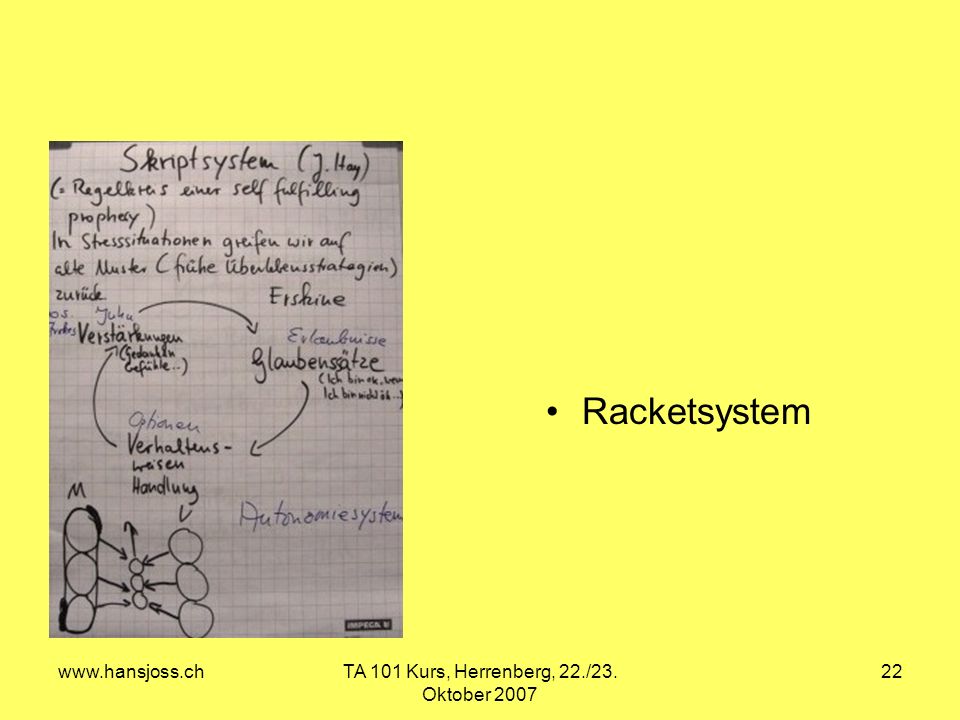 Skriptsystem (J. Hay)
(= Regelkreis einer self fulfilling
prophecy)
In Stresssituationen greifen wir auf
alte Muster (frühe Überlebensstrategien)
zurück
Erskine
Verstärkungen
(Gedanken
Gefühle..)
Erlaubnisse
Glaubenssätze
(Ich bin ok, wenn
Ich bin nicht ok..)
Optionen
Verhaltens-
weisen
Handlung
M
V
Autonomiesystem
IMPEGA
• Racketsystem
www.hansjoss.ch
TA 101 Kurs, Herrenberg, 22./23.
Oktober 2007
22